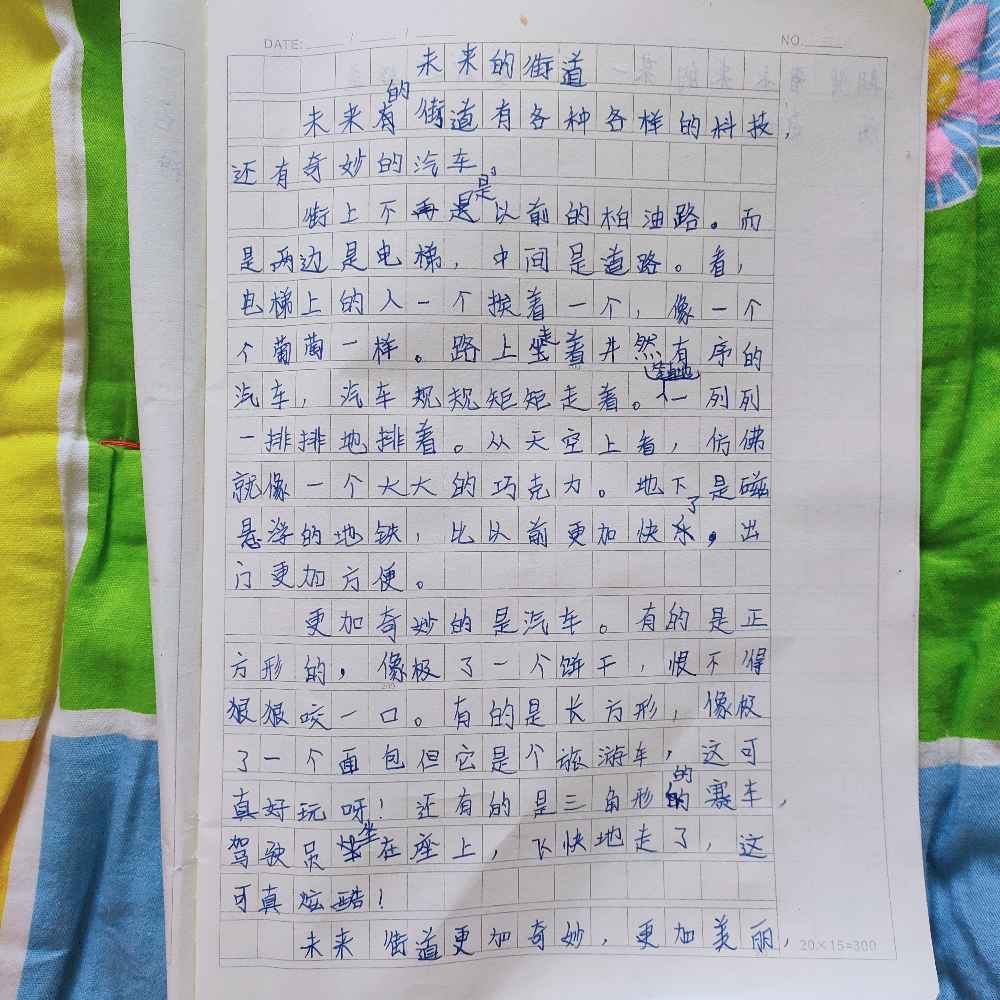 DATE: / /
NO.
未来的街道
未来的街道有各种各样的科技，
还有奇妙的汽车。
街上不再是以前的柏油路。而
是两边是电梯，中间是道路。看，
电梯上的人一个挨着一个，像一个
个葡萄一样。路上走着井然有序的
汽车，汽车规规矩矩走着。一列列
一排排地排着。从天空上看，仿佛
就像一个大大的巧克力。地下是磁
悬浮的地铁，比以前更加快了，出
门更加方便。
更加奇妙的是汽车。有的是正
方形的，像极了一个饼干，恨不得
狠狠咬一口。有的是长方形，像极
了一个面包但它是个旅游车，这可
真好玩呀！还有的是三角形的赛车，
驾驶员坐在座上，飞快地走了，这
可真炫酷！
未来街道更加奇妙，更加美丽，
20×15=300